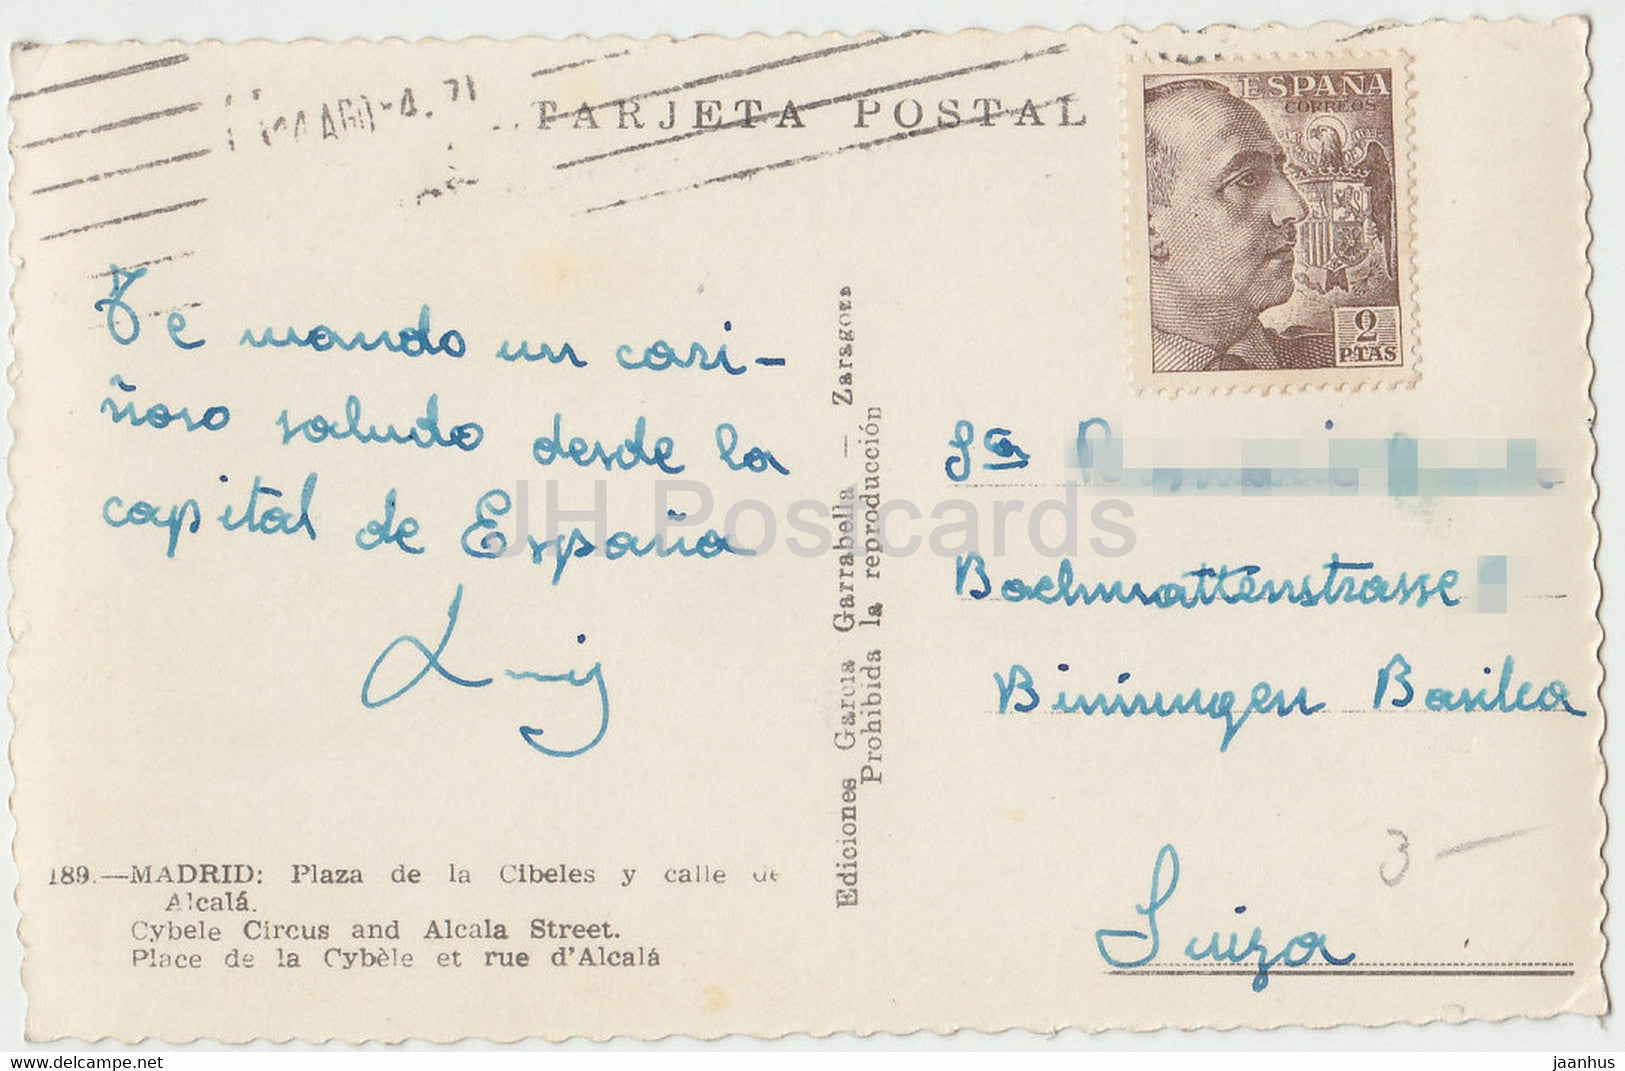 TARJETA POSTAL
ESPAÑA
CORREOS
2
PTAS
Te mando un cari-
ñoso saludo desde la
capital de España
Luis
Ediciones García Garrabella — Zaragoza
Prohibida la reproducción
Sra
Bachmattenstrasse
Binningen Basilea
Suiza
3 —
189.—MADRID: Plaza de la Cibeles y calle de
Alcalá.
Cybele Circus and Alcala Street.
Place de la Cybèle et rue d'Alcalá
JH Postcards
https://www.delcampe.net
jaanhus